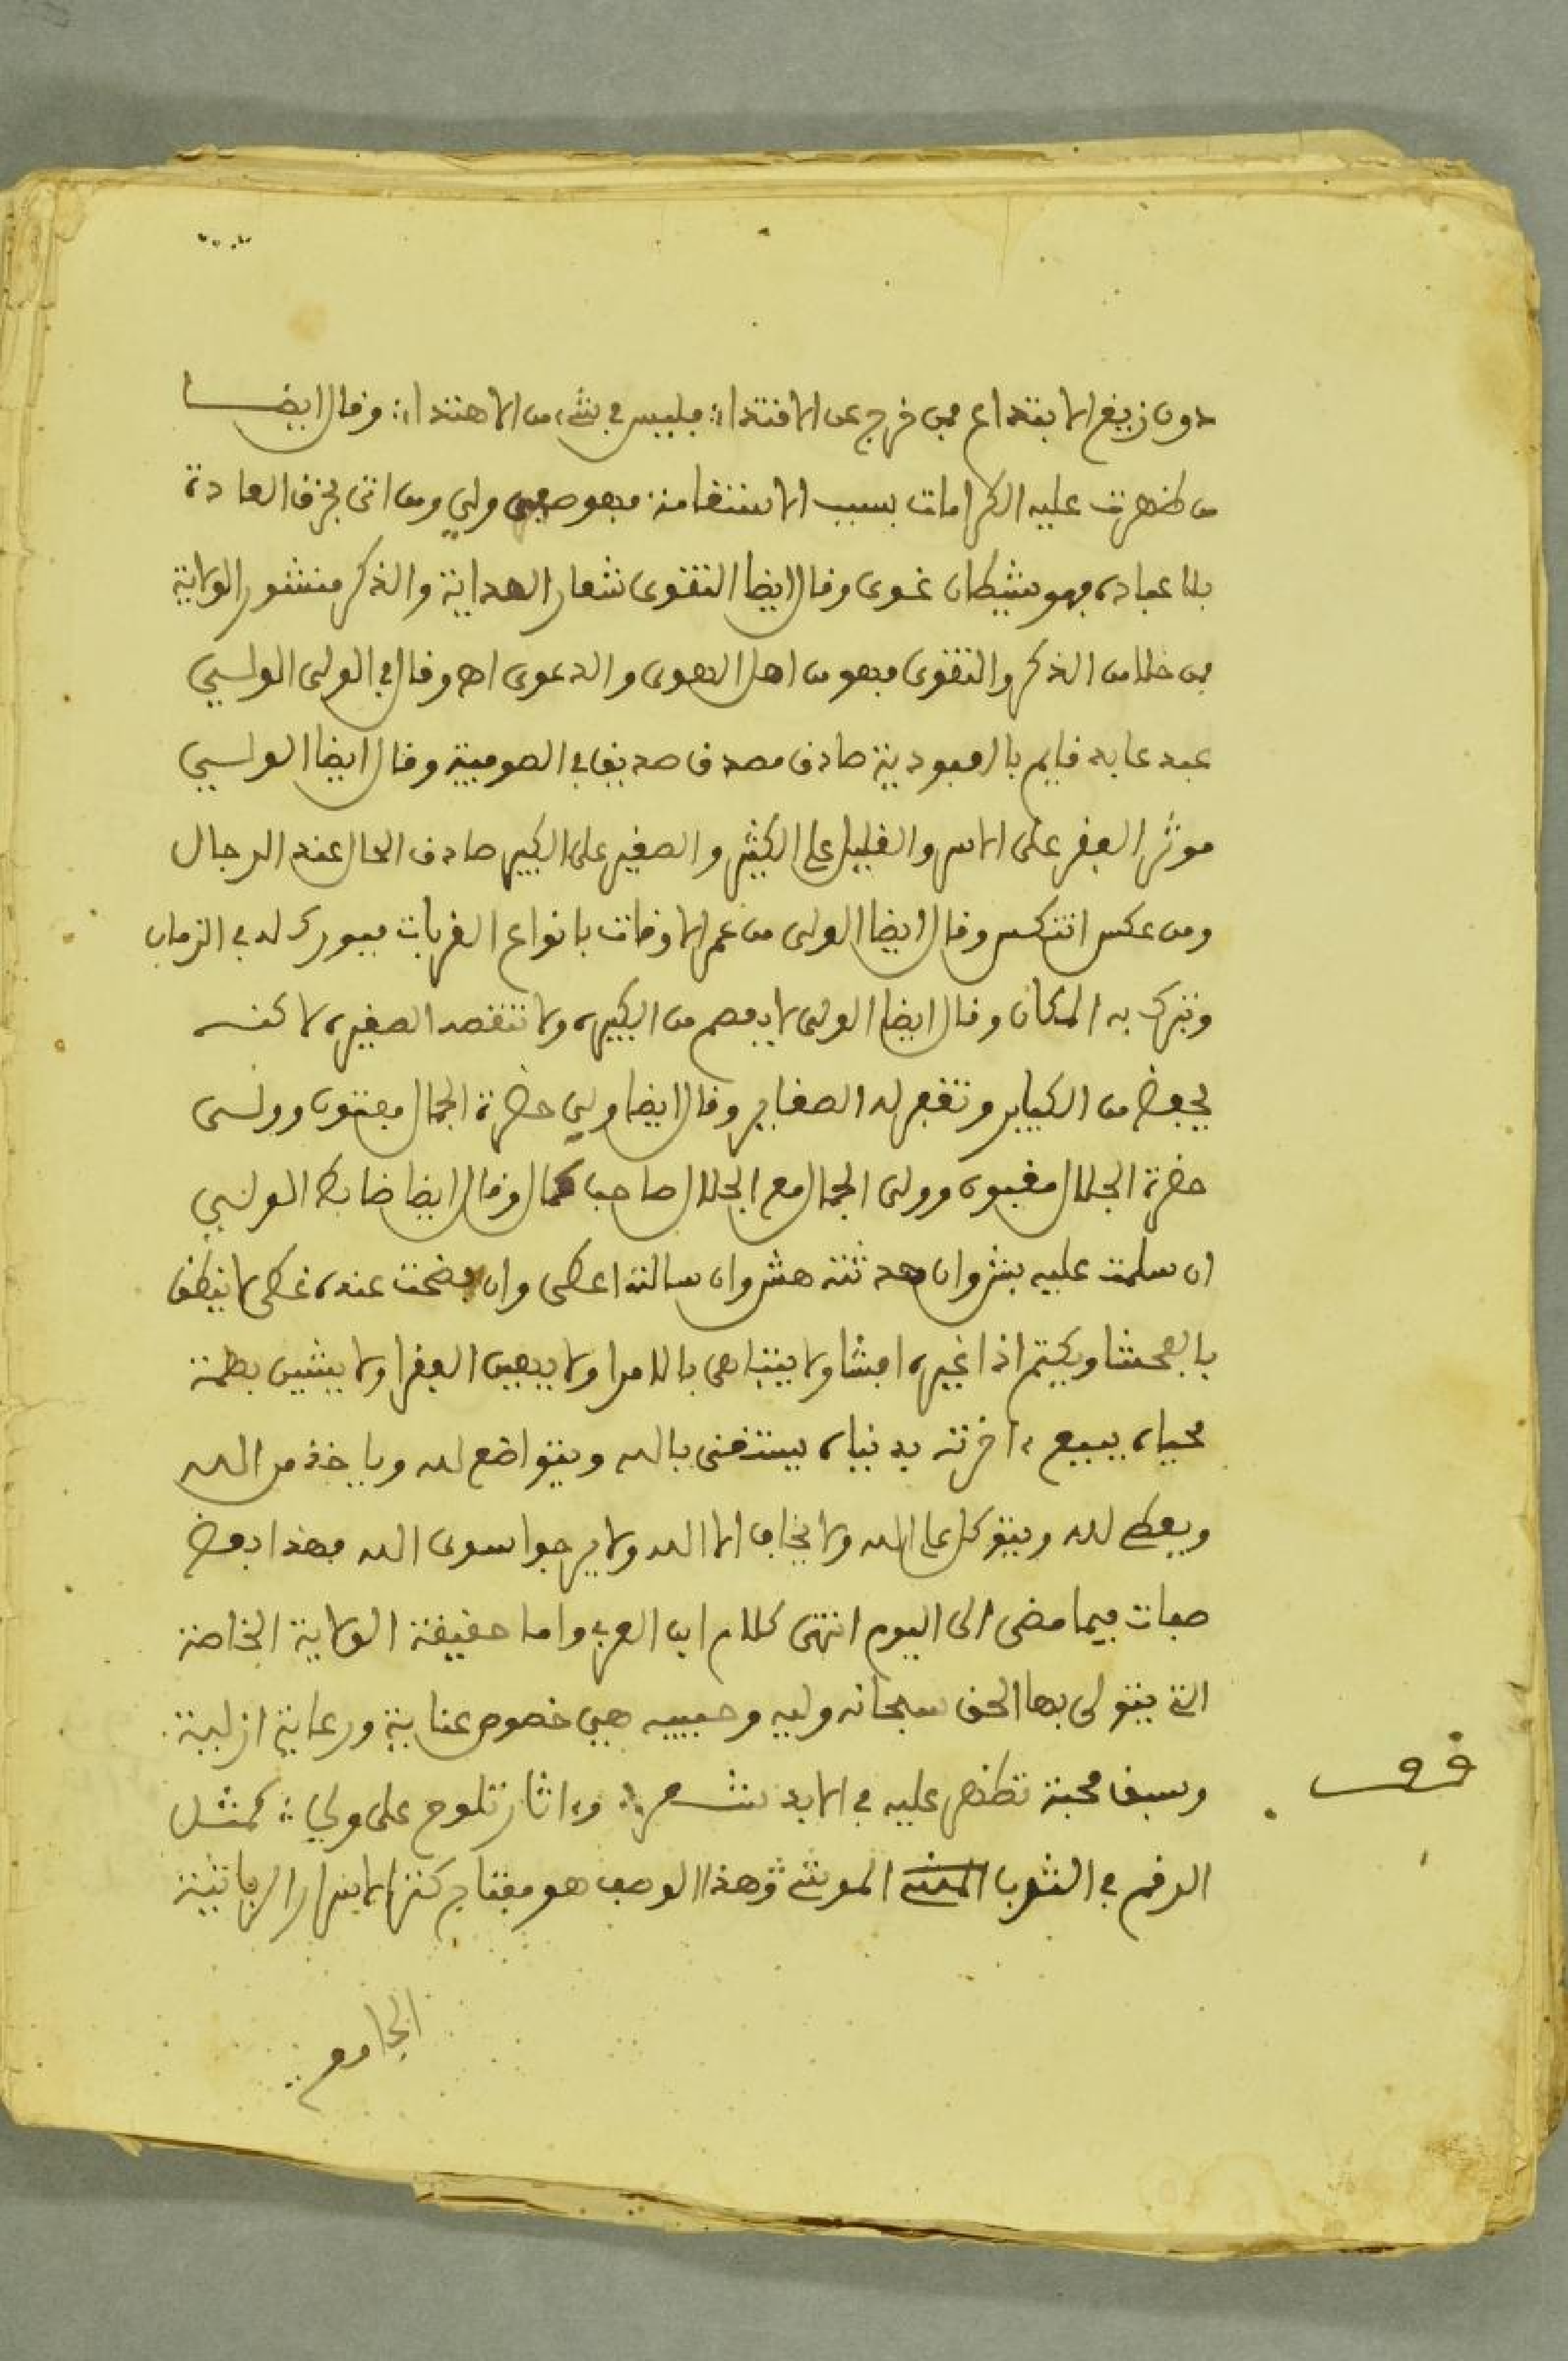 دون زيغ الابتداع فمن خرج عن الاقتدا فليس في شيء من الاهتدا وقال ايضا
من ظهرت عليه الكرامات بسبب الاستقامة فهو صفي ولي ومن اتى بخرق العادة
بلا عبادة فهو شيطان غوى وقال ايضا التقوى شعار الهداية والذكر منشور الولاية
فمن خلا من الذكر والتقوى فهو من اهل الهوى والدعوى اه وقال في الولى الولي
عبد عابد قايم بالعبودية صادق مصدق صديق في الصوفية وقال ايضا الولي
موثر الفقر على والقليل على الكثير والصغير على الكبير صادق الحال عند الرجال
ومن عكس انتكس وقال ايضا الولى من عمر الاوقات بانواع القربات فبورك له في الزمان
وتبرك به المكان وقال ايضا الولى لا يعصم من الكبيرة ولا تنقصه الصغيرة لاكنه
يحفظ من الكباير وتغفر له الصغاير وقال ايضا ولي حضرة الجمال مفتون وولى
حضرة الجلال مغبون وولى الجمال مع الجلال صاحب كمال وقال ايضا ضابط الولي
ان سلمت عليه بش وان حدثته هش وان سالته اعطى وان فضحت عنده غطى لا ينطق
بالفحشا ويكتم اذا غيره افشا ولا يتباهى بالامرا ولا يهين الفقرا ولا يشين بظلمة
محياه يبيع ءاخرته بدنياه يستغنى بالله ويتواضع لله وياخذ من الله
ويعطى لله ويتوكل على الله ولا يخاف الا الله ولا يرجوا سوى الله فهذا بعض
صفات فيما مضى الى اليوم انتهى كلام ابن العربي واما حقيقة الولاية الخاصة
التي يتولى بها الحق سبحانه وليه وحبيبه هي خصوص عناية ورعاية ازلية
وسبق محبة تظهر عليه في الابد شعر وءاثار تلوح على ولي كمثل
الرقم في الثوب الموشى وهذا الوصف هو مفتاح كنز الاسرار الربانية
قف
الجامع